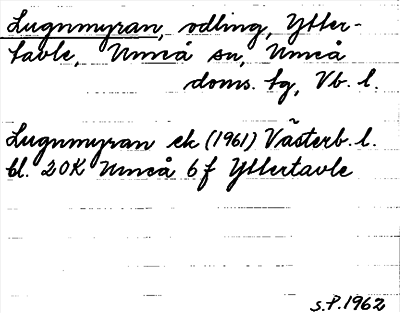 Lugnmyran, odling, Ytter-
tavle, Umeå sn, Umeå
doms. tg, Vb. l.
Lugnmyran ek (1961) Västerb. l.
bl. 20K Umeå 6f Yttertavle
S.P. 1962